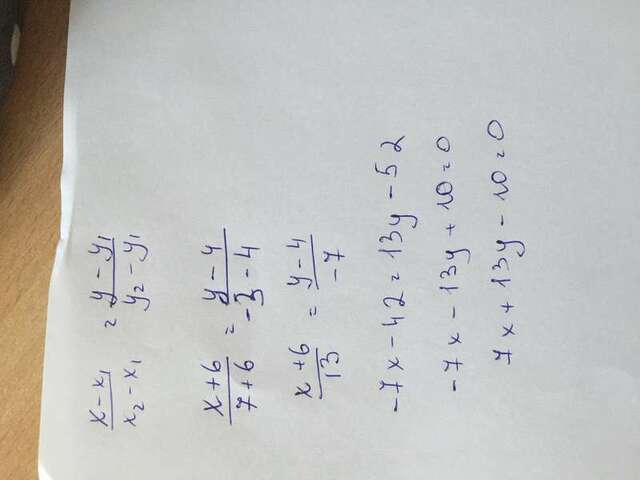 x - x₁ / x₂ - x₁ = y - y₁ / y₂ - y₁
x + 6 / 7 + 6 = y - 4 / -3 - 4
x + 6 / 13 = y - 4 / -7
-7x - 42 = 13y - 52
-7x - 13y + 10 = 0
7x + 13y - 10 = 0